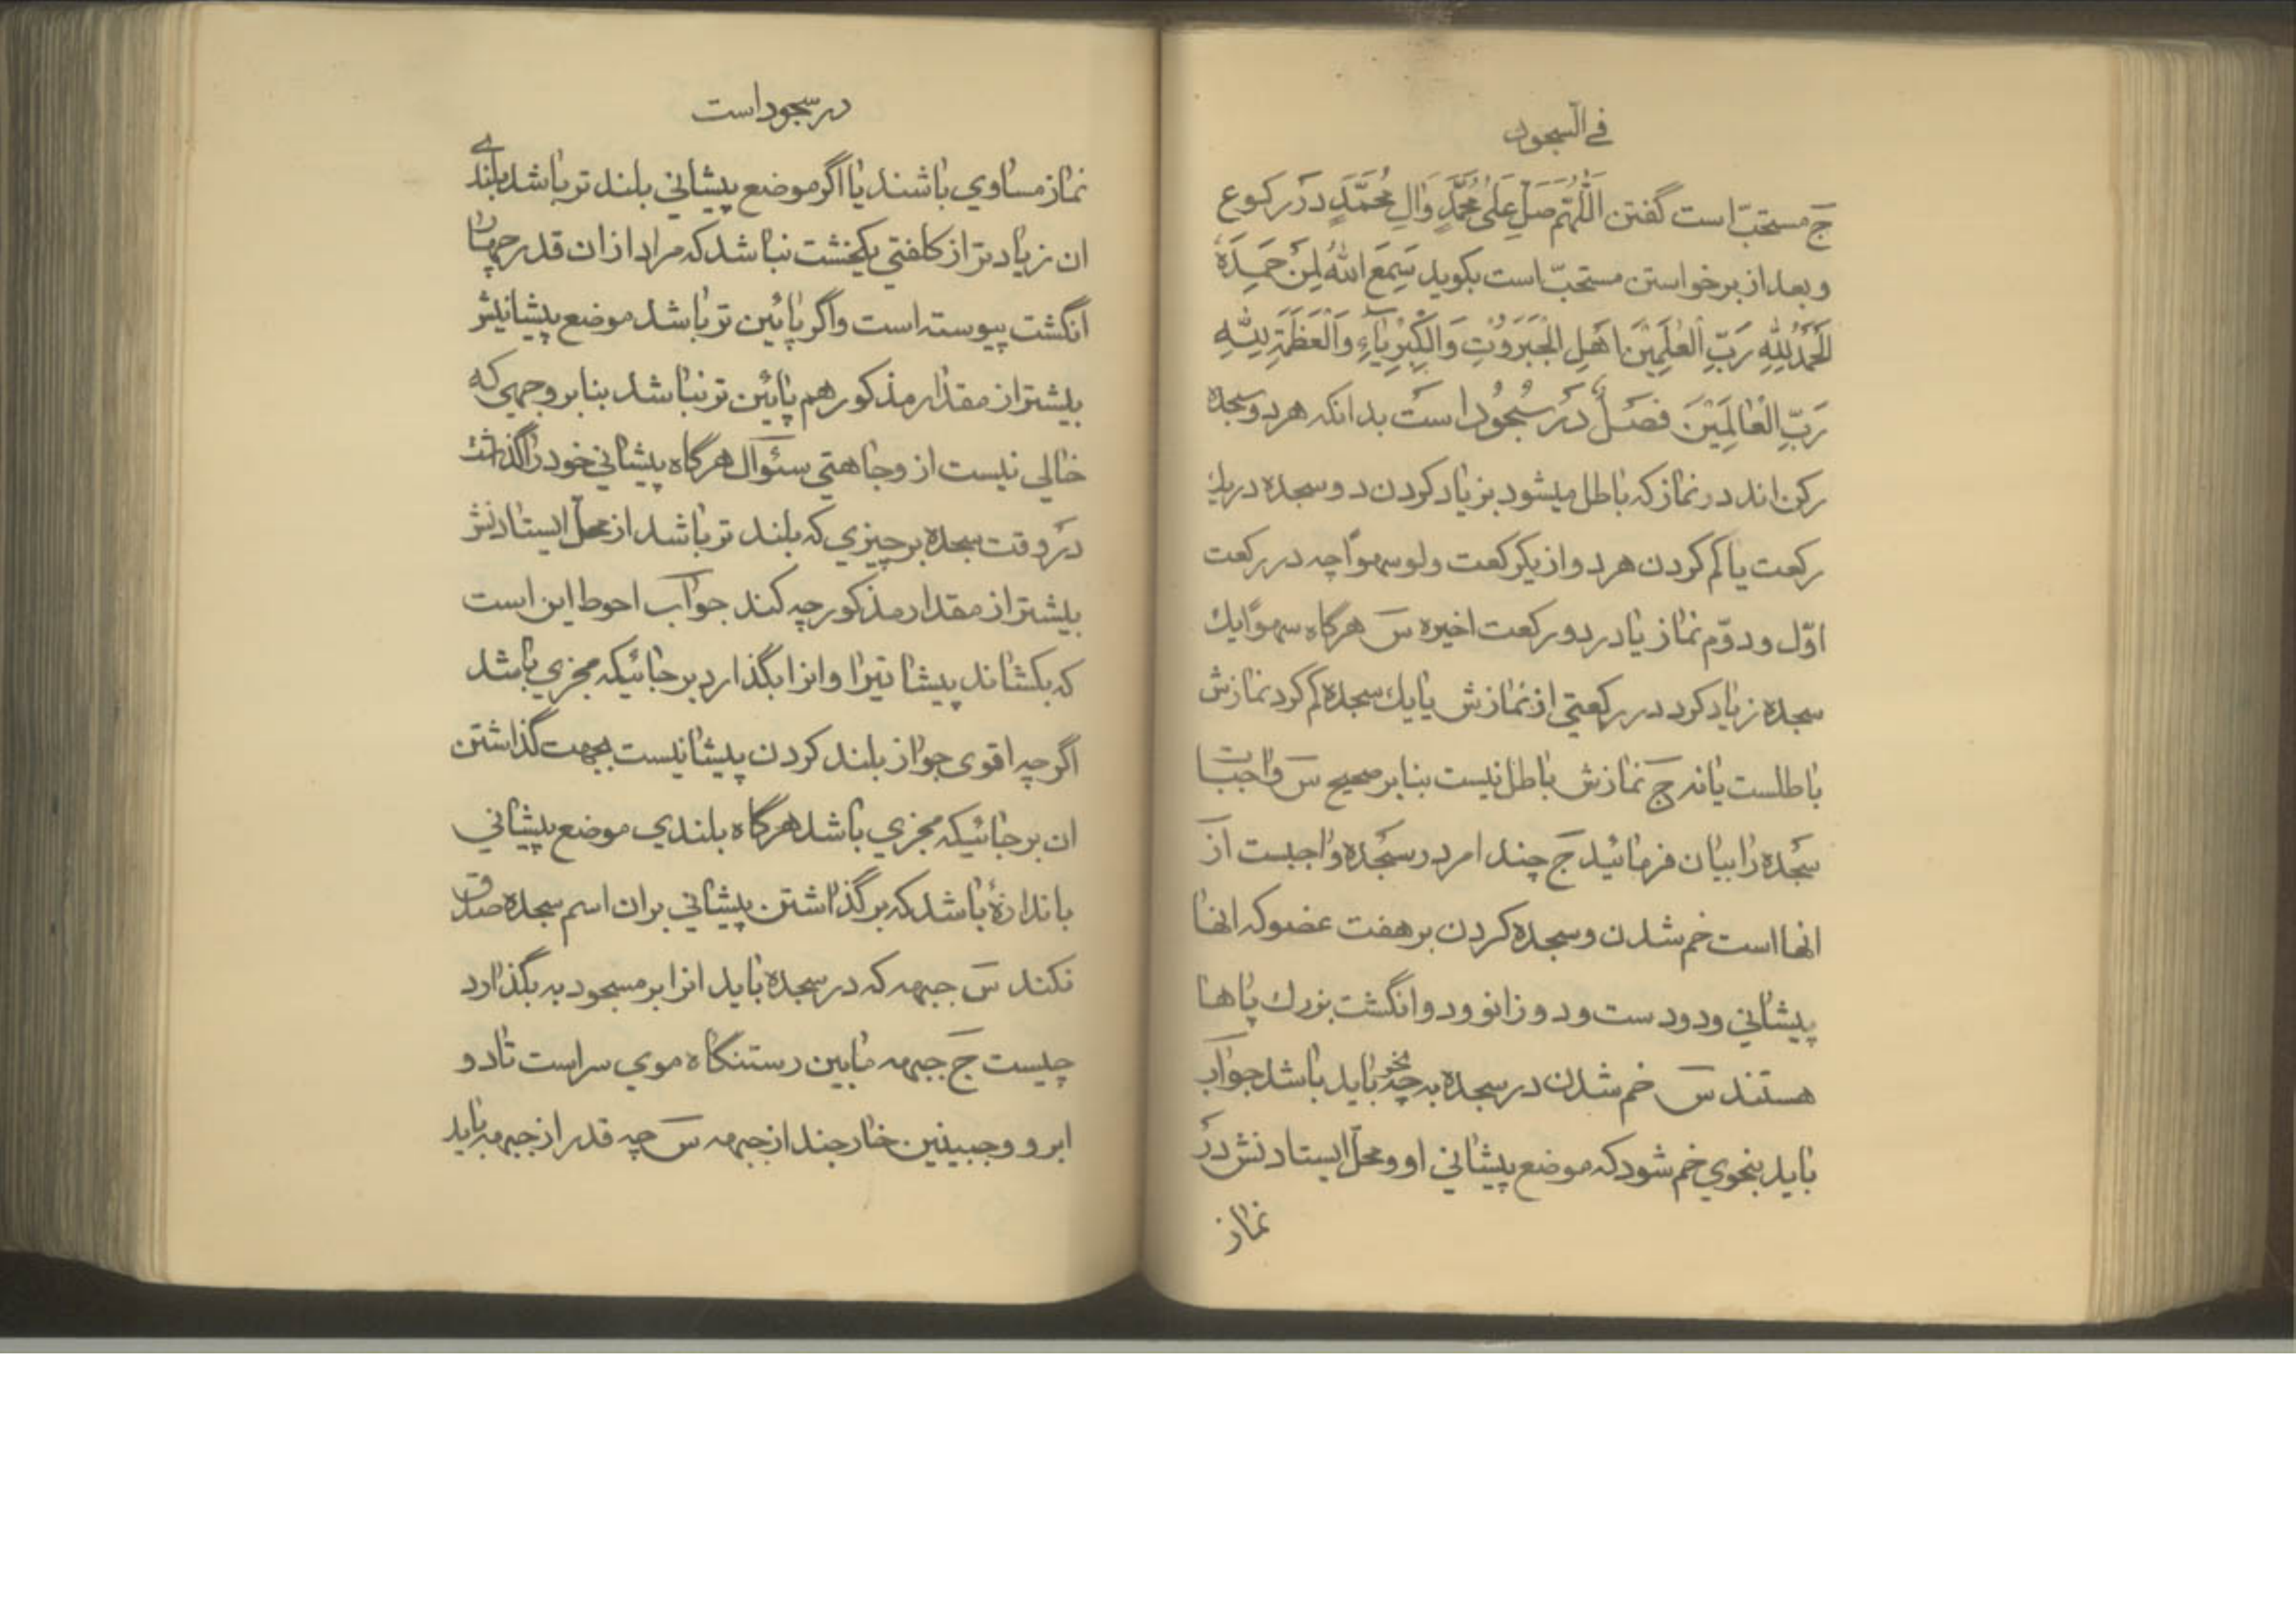 في السجود
ج مستحبّ است گفتن اَللّٰهُمَّ صَلِّ عَلىٰ مُحَمَّدٍ وَاٰلِ مُحَمَّدٍ در ركوع
و بعد از برخواستن مستحبّ است بكويد سَمِعَ اللهُ لِمَنْ حَمِدَهُ
اَلْحَمْدُ لِلّٰهِ رَبِّ الْعٰلَمِيْنَ اَهْلِ الْجَبَرُوْتِ وَالْكِبْرِيٰآءِ وَالْعَظَمَةِ لِلّٰهِ
رَبِّ الْعٰالَمِيْنَ فصَلٌ در سُجُوْد است بدانكه هر دو سجده
ركن اند در نماز كه باطل ميشود بزياد كردن دو سجده در يك
ركعت يا كم كردن هر دو از يكركعت ولو سهواً چه در ركعت
اوّل و دوّم نماز يا در دو ركعت اخيره س هرگاه سهواً يك
سجده زياد كرد در ركعتي از نمازش يا يك سجده كم كرد نمازش
باطلست يا نه ج نمازش باطل نيست بنابر صحيح س واجبات
سجده را بيان فرمائيد ج چند امر در سجده واجبست از
انها است خم شدن و سجده كردن بر هفت عضو كه انها
پيشاني و دو دست و دو زانو و دو انگشت بزرك پاها
هستند س خم شدن در سجده به چه نحو بايد باشد جواب
بايد بنحوي خم شود كه موضع پيشاني او و محلّ ايستادنش در
نماز
در سجود است
نماز مساوي باشند يا اگر موضع پيشاني بلند تر باشد بلندے
ان زياد تر از كلفتي يكخشت نباشد كه مراد از ان قدر چهار
انگشت پيوسته است و اگر پائين تر باشد موضع پيشانيش
بيشتر از مقدار مذكور هم پائين تر نباشد بنابر وجهي كه
خالي نيست از وجاهتي سئوال هرگاه پيشاني خود را گذاشت
در وقت سجده بر چيزي كه بلند تر باشد از محلّ ايستادنش
بيشتر از مقدار مذكور چه كند جواب احوط اين است
كه بكشاند پيشانيرا وانرا بگذارد بر جائيكه مجزي باشد
اگرچه اقوى جواز بلند كردن پيشانيست بجهت گذاشتن
ان بر جائيكه مجزي باشد هرگاه بلندي موضع پيشاني
باندازهٔ باشد كه بر گذاشتن پيشاني بران اسم سجده صدق
نكند س جبهه كه در سجده بايد انرا بر مسجود به بگذارد
چيست ج جبهه مابين رستنگاه موي سر است تا دو
ابرو و جبينين خارجند از جبهه س چه قدر از جبهه بايد